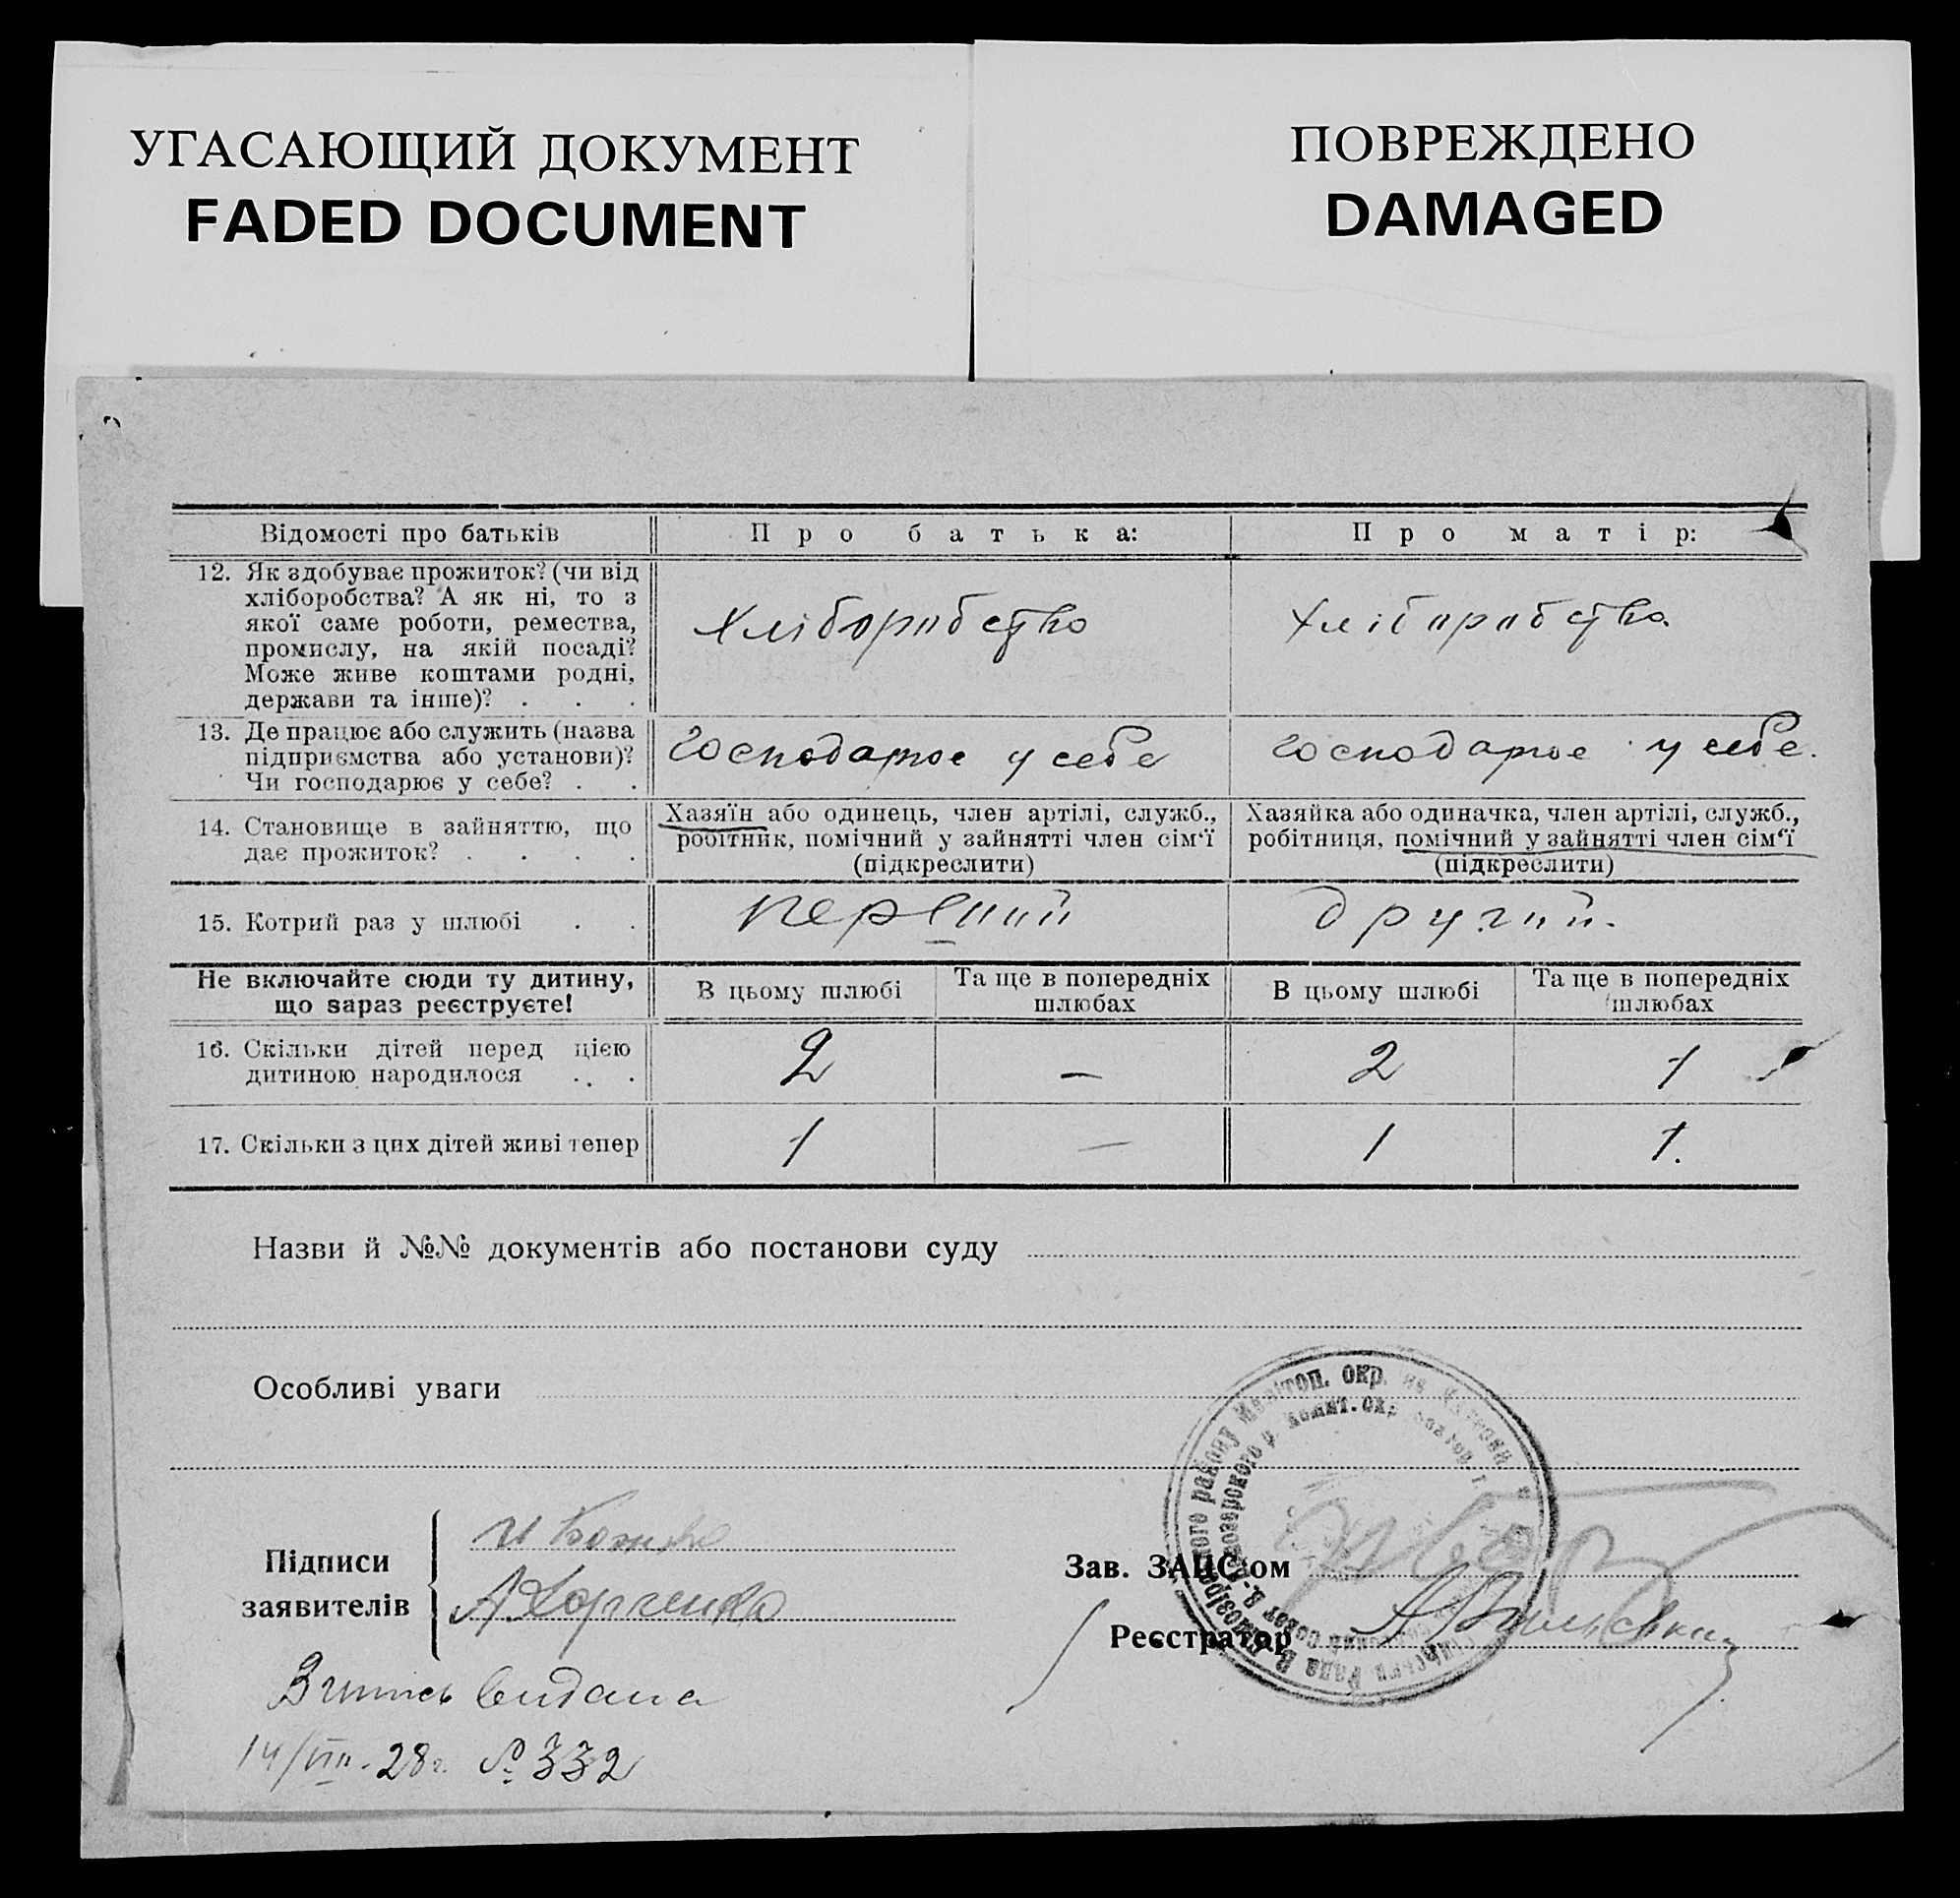 УГАСАЮЩИЙ ДОКУМЕНТ
FADED DOCUMENT
ПОВРЕЖДЕНО
DAMAGED
Відомості про батьків
Про батька:
Про матір:
12. Як здобуває прожиток? (чи від
хліборобства? А як ні, то з
якої саме роботи, ремества,
промислу, на якій посаді?
Може живе коштами родні,
держави та інше)? . . .
Хліборобство
Хліборобство
13. Де працює або служить (назва
підприємства або установи)?
Чи господарює у себе? . .
Господарює у себе
господарює у себе.
14. Становище в зайняттю, що
дає прожиток? . . . .
Хазяїн або одинець, член артілі, служб.,
робітник, помічний у зайнятті член сім'ї
(підкреслити)
Хазяйка або одиначка, член артілі, служб.,
робітниця, помічний у зайнятті член сім'ї
(підкреслити)
15. Котрий раз у шлюбі . .
перший
другий.
Не включайте сюди ту дитину,
що зараз реєструєте!
В цьому шлюбі
Та ще в попередніх
шлюбах
В цьому шлюбі
Та ще в попередніх
шлюбах
16. Скільки дітей перед цією
дитиною народилося . . .
2
—
2
1
17. Скільки з цих дітей живі тепер
1
—
1
1.
Назви й №№ документів або постанови суду
Особливі уваги
району Мелітоп. окр.
Підписи
заявителів
А Харченко
Зав. ЗАПС'ом
Реєстратор
видана
14/VIII-28г. № 332